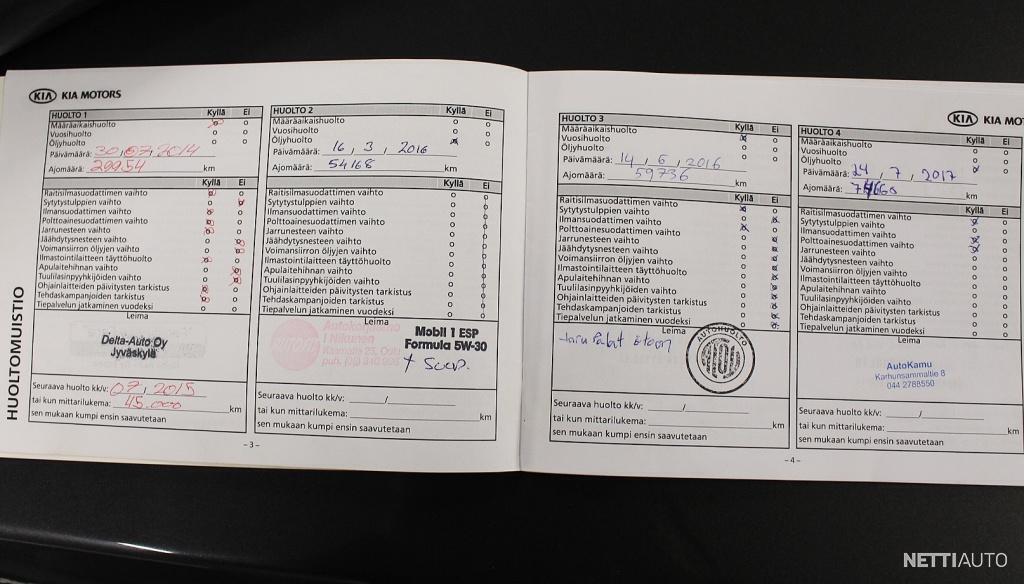 KIA KIA MOTORS
HUOLTOMUISTIO
HUOLTO 1 Kyllä Ei
Määräaikaishuolto
Vuosihuolto
Öljyhuolto
Päivämäärä: 30,07,2014
Ajomäärä: 29954 km
Kyllä Ei
Raitisilmasuodattimen vaihto
Sytytystulppien vaihto
Ilmansuodattimen vaihto
Polttoainesuodattimen vaihto
Jarrunesteen vaihto
Jäähdytysnesteen vaihto
Voimansiirron öljyjen vaihto
Ilmastointilaitteen täyttöhuolto
Apulaitehihnan vaihto
Tuulilasinpyyhkijöiden vaihto
Ohjainlaitteiden päivitysten tarkistus
Tehdaskampanjoiden tarkistus
Tiepalvelun jatkaminen vuodeksi
Leima
Delta-Auto Oy
Jyväskylä
Seuraava huolto kk/v: 07, 2015
tai kun mittarilukema: 45.000 km
sen mukaan kumpi ensin saavutetaan
HUOLTO 2 Kyllä Ei
Määräaikaishuolto
Vuosihuolto
Öljyhuolto
Päivämäärä: 16, 3, 2016
Ajomäärä: 54168 km
Kyllä Ei
Raitisilmasuodattimen vaihto
Sytytystulppien vaihto
Ilmansuodattimen vaihto
Polttoainesuodattimen vaihto
Jarrunesteen vaihto
Jäähdytysnesteen vaihto
Voimansiirron öljyjen vaihto
Ilmastointilaitteen täyttöhuolto
Apulaitehihnan vaihto
Tuulilasinpyyhkijöiden vaihto
Ohjainlaitteiden päivitysten tarkistus
Tehdaskampanjoiden tarkistus
Tiepalvelun jatkaminen vuodeksi
Leima
Mobil 1 ESP
Formula 5W-30
+ suod.
Seuraava huolto kk/v: /
tai kun mittarilukema: km
sen mukaan kumpi ensin saavutetaan
- 3 -
KIA KIA MO
HUOLTO 3 Kyllä Ei
Määräaikaishuolto
Vuosihuolto
Öljyhuolto
Päivämäärä: 14, 6, 2016
Ajomäärä: 59736 km
Kyllä Ei
Raitisilmasuodattimen vaihto
Sytytystulppien vaihto
Ilmansuodattimen vaihto
Polttoainesuodattimen vaihto
Jarrunesteen vaihto
Jäähdytysnesteen vaihto
Voimansiirron öljyjen vaihto
Ilmastointilaitteen täyttöhuolto
Apulaitehihnan vaihto
Tuulilasinpyyhkijöiden vaihto
Ohjainlaitteiden päivitysten tarkistus
Tehdaskampanjoiden tarkistus
Tiepalvelun jatkaminen vuodeksi
Leima
AUTOHUOLTO
Seuraava huolto kk/v: /
tai kun mittarilukema: km
sen mukaan kumpi ensin saavutetaan
HUOLTO 4 Kyllä Ei
Määräaikaishuolto
Vuosihuolto
Öljyhuolto
Päivämäärä: 24, 7, 2017
Ajomäärä: km
Kyllä Ei
Raitisilmasuodattimen vaihto
Sytytystulppien vaihto
Ilmansuodattimen vaihto
Polttoainesuodattimen vaihto
Jarrunesteen vaihto
Jäähdytysnesteen vaihto
Voimansiirron öljyjen vaihto
Ilmastointilaitteen täyttöhuolto
Apulaitehihnan vaihto
Tuulilasinpyyhkijöiden vaihto
Ohjainlaitteiden päivitysten tarkistus
Tehdaskampanjoiden tarkistus
Tiepalvelun jatkaminen vuodeksi
Leima
AutoKamu
Karhunsammaltie 8
044 2788550
Seuraava huolto kk/v: /
tai kun mittarilukema: km
sen mukaan kumpi ensin saavutetaan
- 4 -
NETTIAUTO